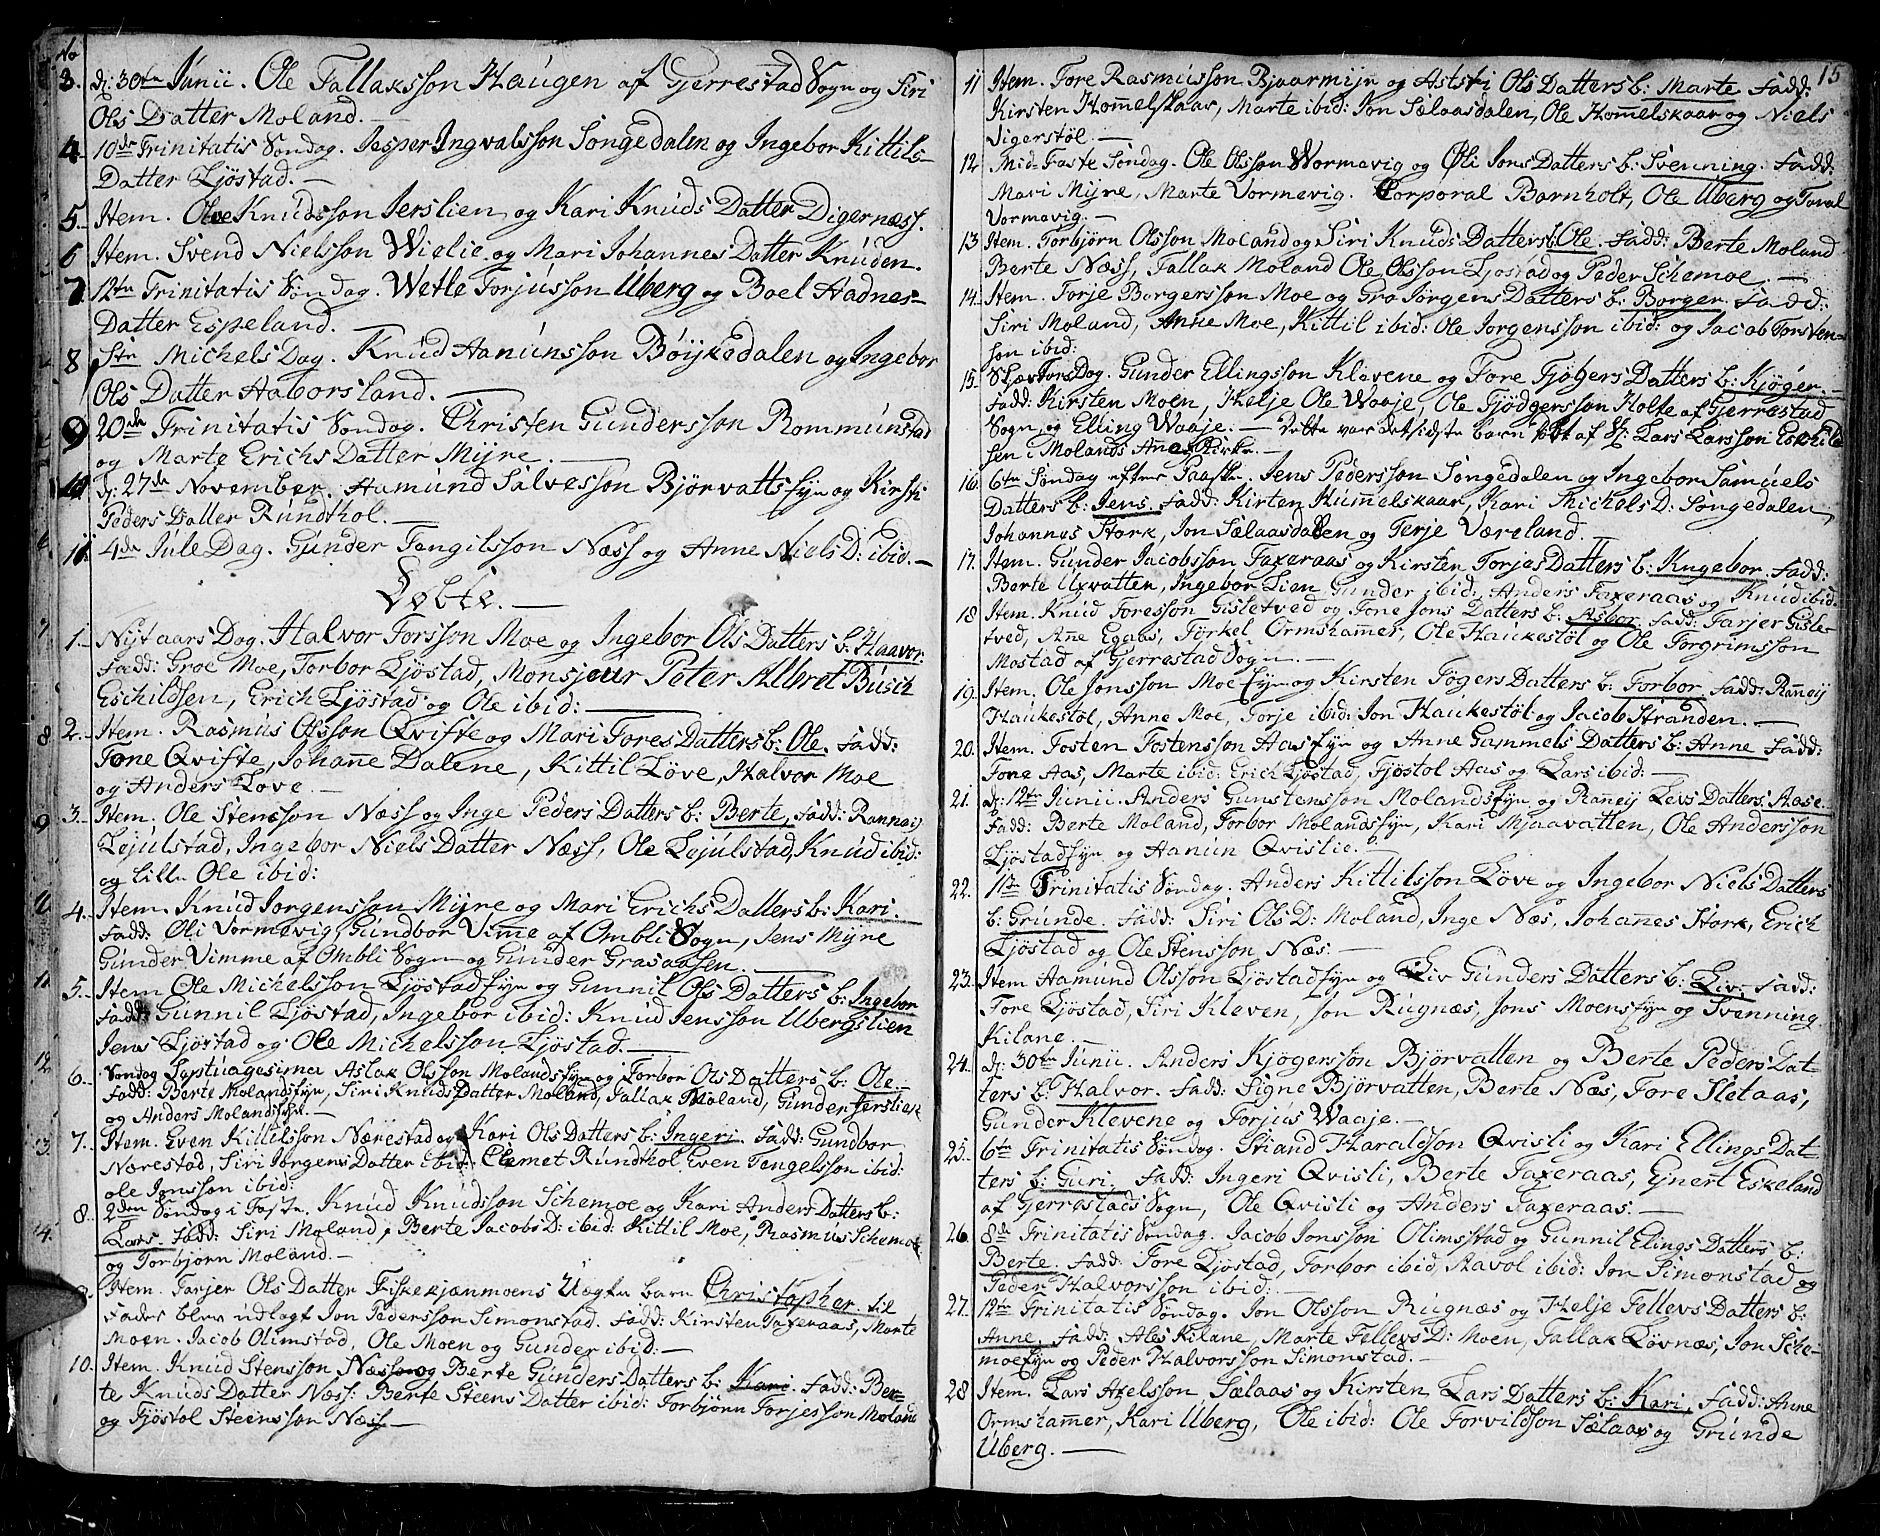 No
3. d: 30te Junii. Ole Fallaksson Haugen af Gjerrestad Sogn og Siri
Ols Datter Moland. —
4 10de Trinitatis Søndag. Jesper Ingvalsson Songedalen og Ingebor Kittils-
Datter Ljøstad. —
5. Item. Ole Knudsson Jerslien og Kari Knuds Datter Digernæss.
6 Item. Svend Nielsson Wielie og Mari Johannes Datter Knuden.
7 12te Trinitatis Søndag. Wetle Torjusson Uberg og Boel Hadnes-
Datter Espeland. —
8 Ste Michels Dag. Knud Hanunsson Bøÿkedalen og Ingebor
Ols Datter Haborsland. —
9 20de Trinitatis Søndag. Christen Gundersson Rommunstad
og Marte Erichs Datter Mÿre. —
10 d: 27de November. Aamund Salvesson Bjørvatts Eÿe og Kirsti
Peders Datter Rundthol. —
11. 4de Jule Dag. Gunder Tengilsson Næss og Anne Niels D: ibid. —
Døbte. —
1. Nÿtaars Dog. Halvor Torsson Moe og Ingebor Ols Datters b. Haavor.
Fadd: Groe Moe, Torbor Ljøstad, Monsjeur Peter Albret Busch
Eschildsen, Erich Ljøstad og Ole ibid: —
2. Item. Rasmus Olsson Qviste og Mari Tores Datters b: Ole. Fadd:
Tone Qviste, Johanne Dalene, Kittil Løve, Halvor Moe
og Anders Løve. —
3. Item. Ole Stensson Næss og Inge Peders Datters b: Berte, Fadd: Rannei
Lejulstad, Ingebor Niels Datter Næss, Ole Lejulstad, Knud ibid:
og lille Ole ibid:
4. Item. Knud Jorgensson Mÿre og Mari Erichs Datters b: Kari.
Fadd: Oli Vormevig, Gundbor Vimme af Ombli Sogn, Jens Mÿre
Gunder Vimme af Ombli Sogn og Gunder Grasaasen. —
5. Item Ole Michelsson Ljøstads Eÿe og Gunnil Ols Datters b: Ingebor
Fadd: Gunnil Ljøstad, Ingebor ibid: Knud Jensson Ubergslien
Jens Ljøstad og Ole Michelsson Ljøstad. —
6. Søndag Septuagesima Aslak Olsson Molands Eÿe og Torbor Ols Datters b: Ole.
Fadd: Berte Molands Eÿe, Siri Knuds Datter Moland, Fallak Moland, Gunder Jerslien
og Anders Molands Eÿe. —
7. Item. Even Kittilsson Nærestad og Kari Ols Datters b: Ingeri. Fadd: Gundbor
Nærestad, Siri Jørgens Datter ibid: Clemet Rundthol, Even Tengelsson ibid:
ole Jonsson ibid:
8. 2den Søndag i Faste. Knud Knudsson Schemoe og Kari Anders Datters b:
Lars. Fadd: Siri Moland, Berte Jacobs D: ibid: Kittil Moe, Rasmus Schemoe
og Torbjørn Moland. —
9. Item. Tarjer Ols Datter Fiskekjænmoens Uægte barn Christopher. til
Fader blev udlagt Jon Pedersson Simonstad. Fadd: Kirsten Faxeraas, Marte
Moen. Jacob Olimstad, Ole Moen og Gunder ibid: —
10. Item. Knud Stensson Næss og Berte Gunders Datters b: Kari. Fadd: Ber-
te Knuds Datter Næss: Berte Steens Datter ibid: Torbjørn Torjesson Moland
og Tjøstol Steensson Næss —
15
11 Item. Tore Rasmusson Bjaarmÿr og Aststri Ols Datters b: Marte Fadd:
Kirsten Hommelskaar, Marte ibid: Jon Sælaasdalen, Ole Hommelskaar og Niels
Sigerstøl. —
12 Mid-Faste Søndag. Ole Olsson Wormevig og Øli Jons Datters b: Svenning. Fadd:
Mari Mÿre, Marte Vormevig. Corporal Barnholt, Ole Uberg og Taral
Vormevig. —
13 Item. Torbjørn Olsson Moland og Siri Knuds Datters b: Ole. Fadd: Berte Moland
Berte Næss, Fallak Moland Ole Olsson Ljøstad og Peder Schemoe. —
14. Item. Torje Borgersson Moe og Gro Jørgens Datters b: Borger. Fadd:
Siri Moland, Anne Moe, Kittil ibid: Ole Jorgensson ibid: og Jacob Torsven-
son ibid:
15. Skjærtors Dag. Gunder Ellingsson Klevene og Tore Tjøgers Datters b: Kjøger.
Fadd: Kirsten Moen, Helje Ole Waaje, Ole Tjødgersson Holte af Gjerrestad
Sogn, og Elling Waaje: — Dette var det sidste barn døbt af Hr: Lars Larsson Eschild-
sen i Molands Annex Kirke. —
16. 6te Søndag efter Paaske. Jens Pedersson Songedalen og Ingebor Samuels
Datters b: Jens. Fadd: Kirten Hummelskaar, Kari Michels D: Songedalen,
Johannes Stork, Jon Sælaasdalen og Terje Væreland. —
17. Item. Gunder Jacobsson Faxeraas og Kirsten Torjes Datters b: Kngebor. Fadd:
Berte Uxvatten, Ingebor Lien Gunder ibid: Anders Faxeraas og Knud ibid:
18 Item. Knud Toresson Gisletved og Tone Jons Datters b: Asbor. Fadd: Tarjer Gisle-
tved, Anne Egaas, Tørkel Ormshammer, Ole Haukestøl og Ole Torgrimsson
Mostad af Gjerrestad Sogn. —
19. Item. Ole Jonsson Moe Eÿe og Kirsten Tøgers Datters b: Torbor. Fadd: Rannei
Haukestøl, Anne Moe, Torje ibid: Jon Haukestøl og Jacob Stranden. —
20. Item. Tosten Tostensson Aas Eÿe og Anne Gammels Datters b: Anne Fadd:
Tone Aas, Marte ibid: Erich Ljøstad, Tjøstol Aas og Lars ibid: —
21. d: 12te Junii. Anders Gunstensson Molands Eÿe og Ranneÿ Levs Datters: Aase.
Fadd: Berte Moland, Torbor Molands Eÿe, Kari Mjaavatten, Ole Andersson
Ljøstads Eÿe og Hanun Qvislie. —
22. 113te Trinitatis Søndag. Anders Kittilsson Løve og Ingebor Niels Datters
b: Grunde. Fadd: Siri Ols D: Moland, Inge Næs, Johannes Stork, Erich
Ljøstad og Ole Stensson Næs: —
23. Item Aamund Olsson Ljøstads Eÿe og Liv Gunders Datters b: Liv: Fadd:
Tore Ljøstad, Siri Kleven, Jon Rugnæs, Jons Moens Eÿe og Svenning
Kilane. —
24. d: 30te Junii. Anders Kjøgersson Bjørvatten og Berte Peders Dat-
ters b: Halvor. Fadd: Signe Bjørvatten, Berte Næs, Tore Sletaas,
Gunder Klevene og Torjus Waaje. —
25. 6te Trinitatis Søndag. Strand Haraldsson Qvisli og Kari Ellings Dat-
ters b: Guri. Fadd: Ingeri Qvisli, Berte Faxeraas, Ejnert Eskeland
af Gjerrestads Sogn, Ole Qvisli og Anders Faxeraas: —
26. 8de Trinitatis Søndag. Jacob Jonsson Olimstad og Gunnil Elings Datters b:
Berte. Fadd: Tore Ljøstad, Torbor ibid, Stavol ibid: Jon Simonstad og
Peder Halvorsson ibid: —
27. 12te Trinitatis Søndag. Jon Olsson Rugnæs og Helje Fellevs Datters b:
Anne. Fadd: Ales Kilane, Marte Fellevs D: Moen, Fallak Løvnæs, Jon Sche-
moe Eÿe og Peder Halvorsson Simonstad. —
28 Item. Lars Axelsson Sælaas og Kirsten Lars Datters b: Kari, Fadd: Anne
Ormshammer, Kari Uberg, Ole ibid: Ole Torvildsson Sælaas og Grunde
Uberg. —